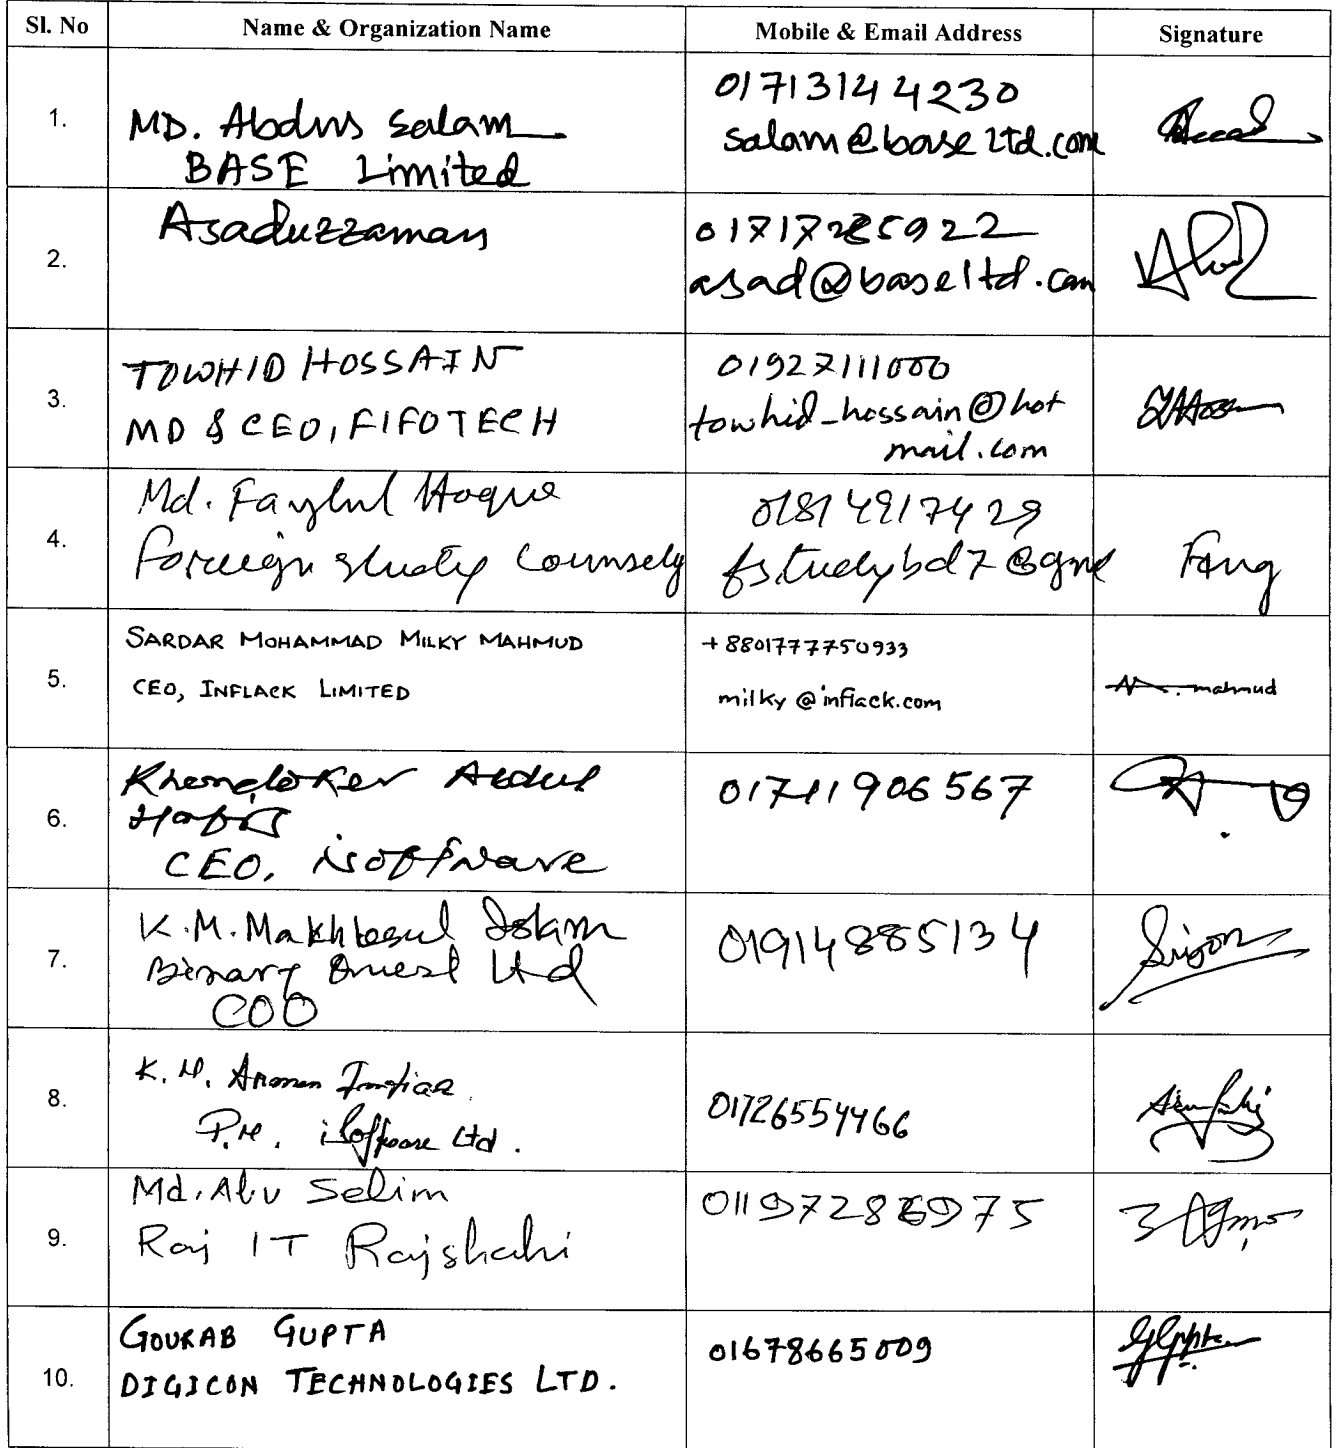 Sl. No
Name & Organization Name
Mobile & Email Address
Signature
1.
MD. Abdus Salam
BASE Limited
01713144230
salam@baseltd.com
2.
Asaduzzaman
01717285922
asad@baseltd.com
3.
TOWHID HOSSAIN
MD & CEO, FIFOTECH
01927111000
towhid_hossain@hot
mail.com
4.
Md. Fazlul Hoque
Foreign study Counsely
01814917429
fstudybd7@gmail
5.
SARDAR MOHAMMAD MILKY MAHMUD
CEO, INFLACK LIMITED
+8801777750933
milky@inflack.com
mahmud
6.
Khondoker Abdul
Hafiz
CEO, isoftware
01711906567
7.
K.M. Makhbesul Islam
Binary Quest Ltd
COO
01914885134
8.
K. M. Arman Imtiaz
P.M. isoftware Ltd.
01726554466
9.
Md. Abu Selim
Raj IT Rajshahi
01197286975
10.
GOURAB GUPTA
DIGICON TECHNOLOGIES LTD.
01678665009